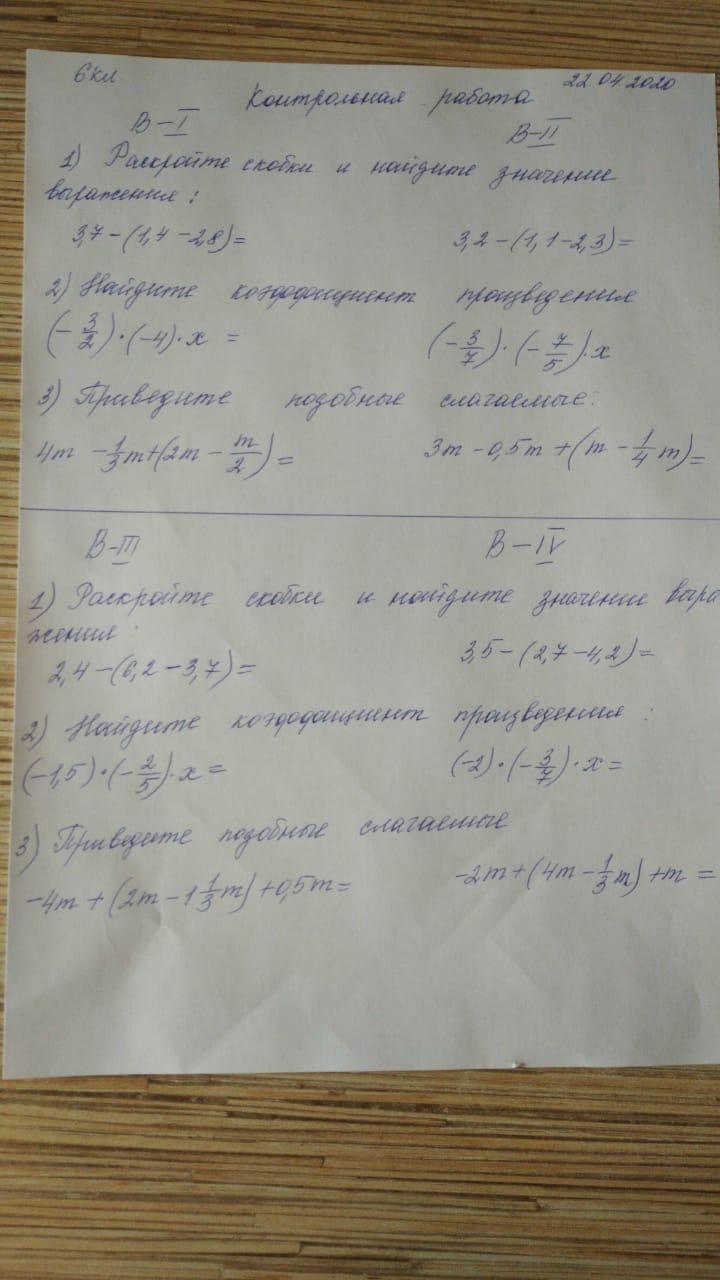 6 кл 22.04.2020
Контрольная работа
В-I В-II
1) Раскройте скобки и найдите значение
выражения:
3,7-(1,4-2,8)= 3,2-(1,1-2,3)=
2) Найдите коэффициент произведения
(-3/2)·(-4)·x = (-3/7)·(-7/5)·x
3) Приведите подобные слагаемые:
4m - 1/3m+(2m - m/2)= 3m-0,5m+(m-1/4m)=
В-III В-IV
1) Раскройте скобки и найдите значение выра
жения:
2,4-(6,2-3,7)= 3,5-(2,7-4,2)=
2) Найдите коэффициент произведения:
(-1,5)·(-2/5)·x= (-2)·(-3/7)·x=
3) Приведите подобные слагаемые
-4m+(2m-1 1/3m)+0,5m= -2m+(4m-1/3m)+m=